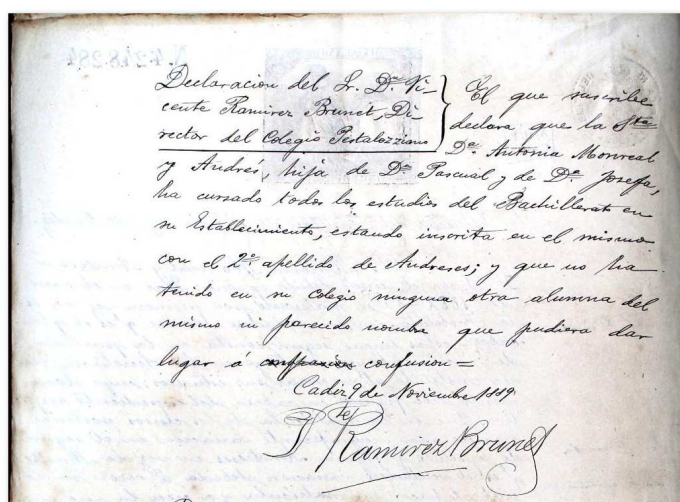 Declaracion del Sr. Dn. Vi-
cente Ramirez Brunet, Di-
rector del Colegio Pestalozziano
El que suscribe
declara que la Srta
Da. Antonia Monreal
y Andrés, hija de Dn Pascual y de Da. Josefa,
ha cursado todos los estudios del Bachillerato en
su Establecimiento, estando inscrita en el mismo
con el 2º. apellido de Andreses; y que no ha
tenido en su Colegio ninguna otra alumna del
mismo ni parecido nombre que pudiera dar
lugar á confusion =
Cadiz 9 de Noviembre 1889.
Ramirez Brunet